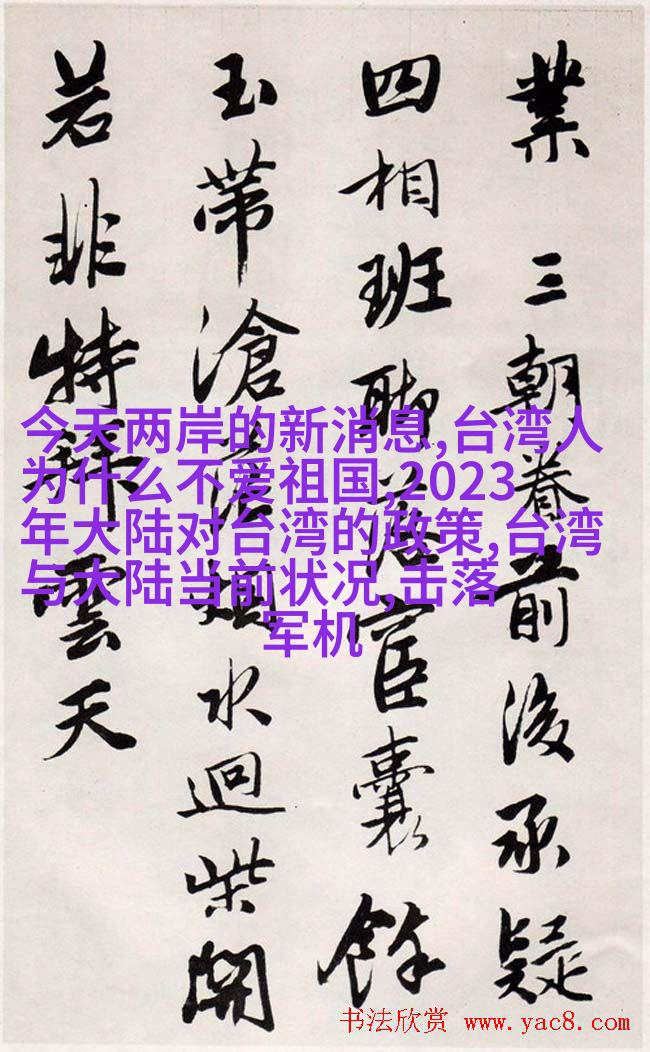 業三朝眷前後承疑
四相班聯落宦囊餘
玉帶滄烟水迴柴開
若非特拜雲天
今天两岸的新消息,台湾人
为什么不爱祖国,2023
年大陆对台湾的政策,台湾
与大陆当前状况,击落
军机
书法欣赏 www.yac8.com